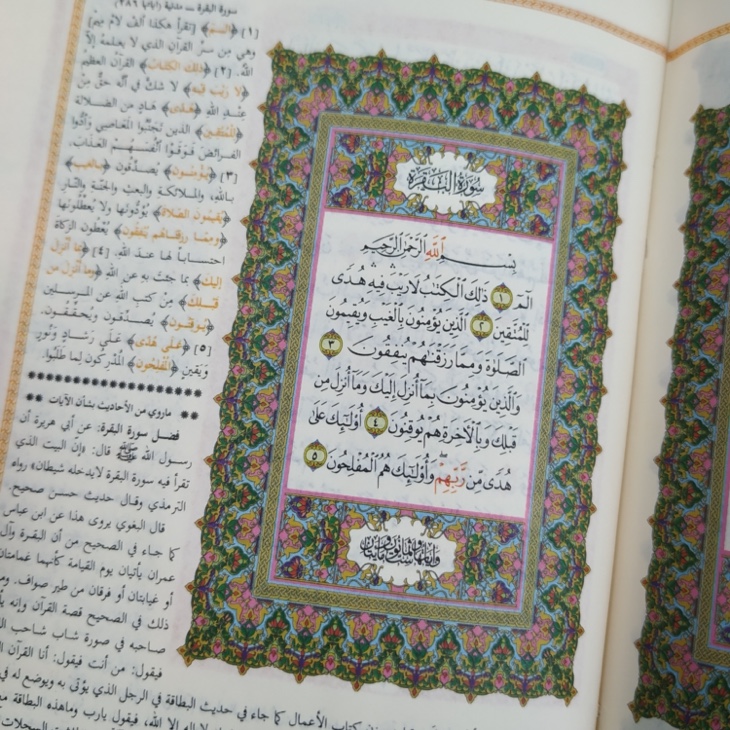 سورة البقرة — مدنية (آياتها ٢٨٦)
[١] ﴿الم﴾ [تقرأ هكذا: ألف لام ميم]
وهي من سر القرآن الذي لا يعلمه إلا
الله. [٢] ﴿ذلك الكتاب﴾ القرآن العظيم
﴿لا ريب فيه﴾ لا شك في أنه حق من
عند الله ﴿هدى﴾ هادٍ من الضلالة
﴿للمتقين﴾ الذين تجنبوا المعاصي وأدوا
الفرائض فوقوا أنفسهم العذاب.
[٣] ﴿يؤمنون﴾ يصدقون ﴿بالغيب﴾
بالله، والملائكة والبعث والجنة والنار
﴿يقيمون الصلاة﴾ يؤدونها ولا يعطلونها
﴿ومما رزقناهم ينفقون﴾ يعطون الزكاة
احتساباً لها عند الله. [٤] ﴿بما أنزل
إليك﴾ بما جئت به عن الله ﴿ما أنزل من
قبلك﴾ من كتب الله عن المرسلين
﴿يوقنون﴾ يصدقون ويحققون.
[٥] ﴿على هدى﴾ على رشاد ونور
ويقين ﴿المفلحون﴾ المدركون لما طلبوا.
ماروي من الأحاديث بشأن الآيات
فضل سورة البقرة: عن أبي هريرة أن
رسول الله ﷺ قال: «إن البيت الذي
تقرأ فيه سورة البقرة لايدخله شيطان» رواه
الترمذي وقال حديث حسن صحيح.
قال البغوي يروى هذا عن ابن عباس
كما جاء في الصحيح من أن البقرة وآل
عمران يأتيان يوم القيامة كأنهما غمامتان
أو غيايتان أو فرقان من طير صواف. ومن
ذلك في الصحيح قصة القرآن وإنه يأ
صاحبه في صورة شاب شاحب ال
فيقول: من أنت فيقول: أنا القرآن ال
كتاب الأعمال كما جاء في حديث البطاقة في الرجل الذي يؤتى به ويوضع له في
لا إله إلا الله، فيقول يارب وماهذه البطاقة مع
السجلات
سورة البقرة
بسم الله الرحمن الرحيم
الٓمٓ ١ ذَٰلِكَ ٱلْكِتَٰبُ لَا رَيْبَ ۛ فِيهِ ۛ هُدًى
لِّلْمُتَّقِينَ ٢ ٱلَّذِينَ يُؤْمِنُونَ بِٱلْغَيْبِ وَيُقِيمُونَ
ٱلصَّلَوٰةَ وَمِمَّا رَزَقْنَٰهُمْ يُنفِقُونَ ٣
وَٱلَّذِينَ يُؤْمِنُونَ بِمَآ أُنزِلَ إِلَيْكَ وَمَآ أُنزِلَ مِن
قَبْلِكَ وَبِٱلْآخِرَةِ هُمْ يُوقِنُونَ ٤ أُو۟لَٰٓئِكَ عَلَىٰ
هُدًى مِّن رَّبِّهِمْ ۖ وَأُو۟لَٰٓئِكَ هُمُ ٱلْمُفْلِحُونَ ٥